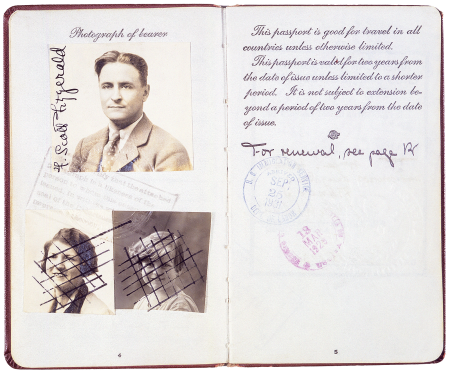 Photograph of bearer
F. Scott Fitzgerald
4
This passport is good for travel in all
countries unless otherwise limited.
This passport is valid for two years from
the date of issue unless limited to a shorter
period. It is not subject to extension be-
yond a period of two years from the date
of issue.
For renewal, see page 12
SEP
18
MAR
5